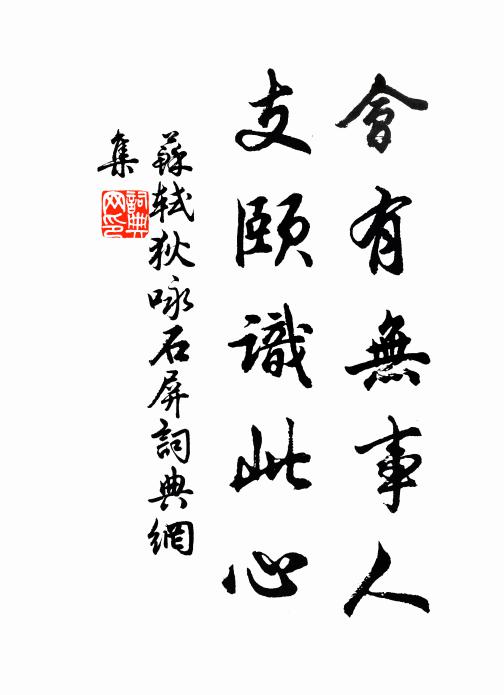 會有無事人
支頤識此心
蘇軾狄咏石屏詞典網
集
詞典
网印